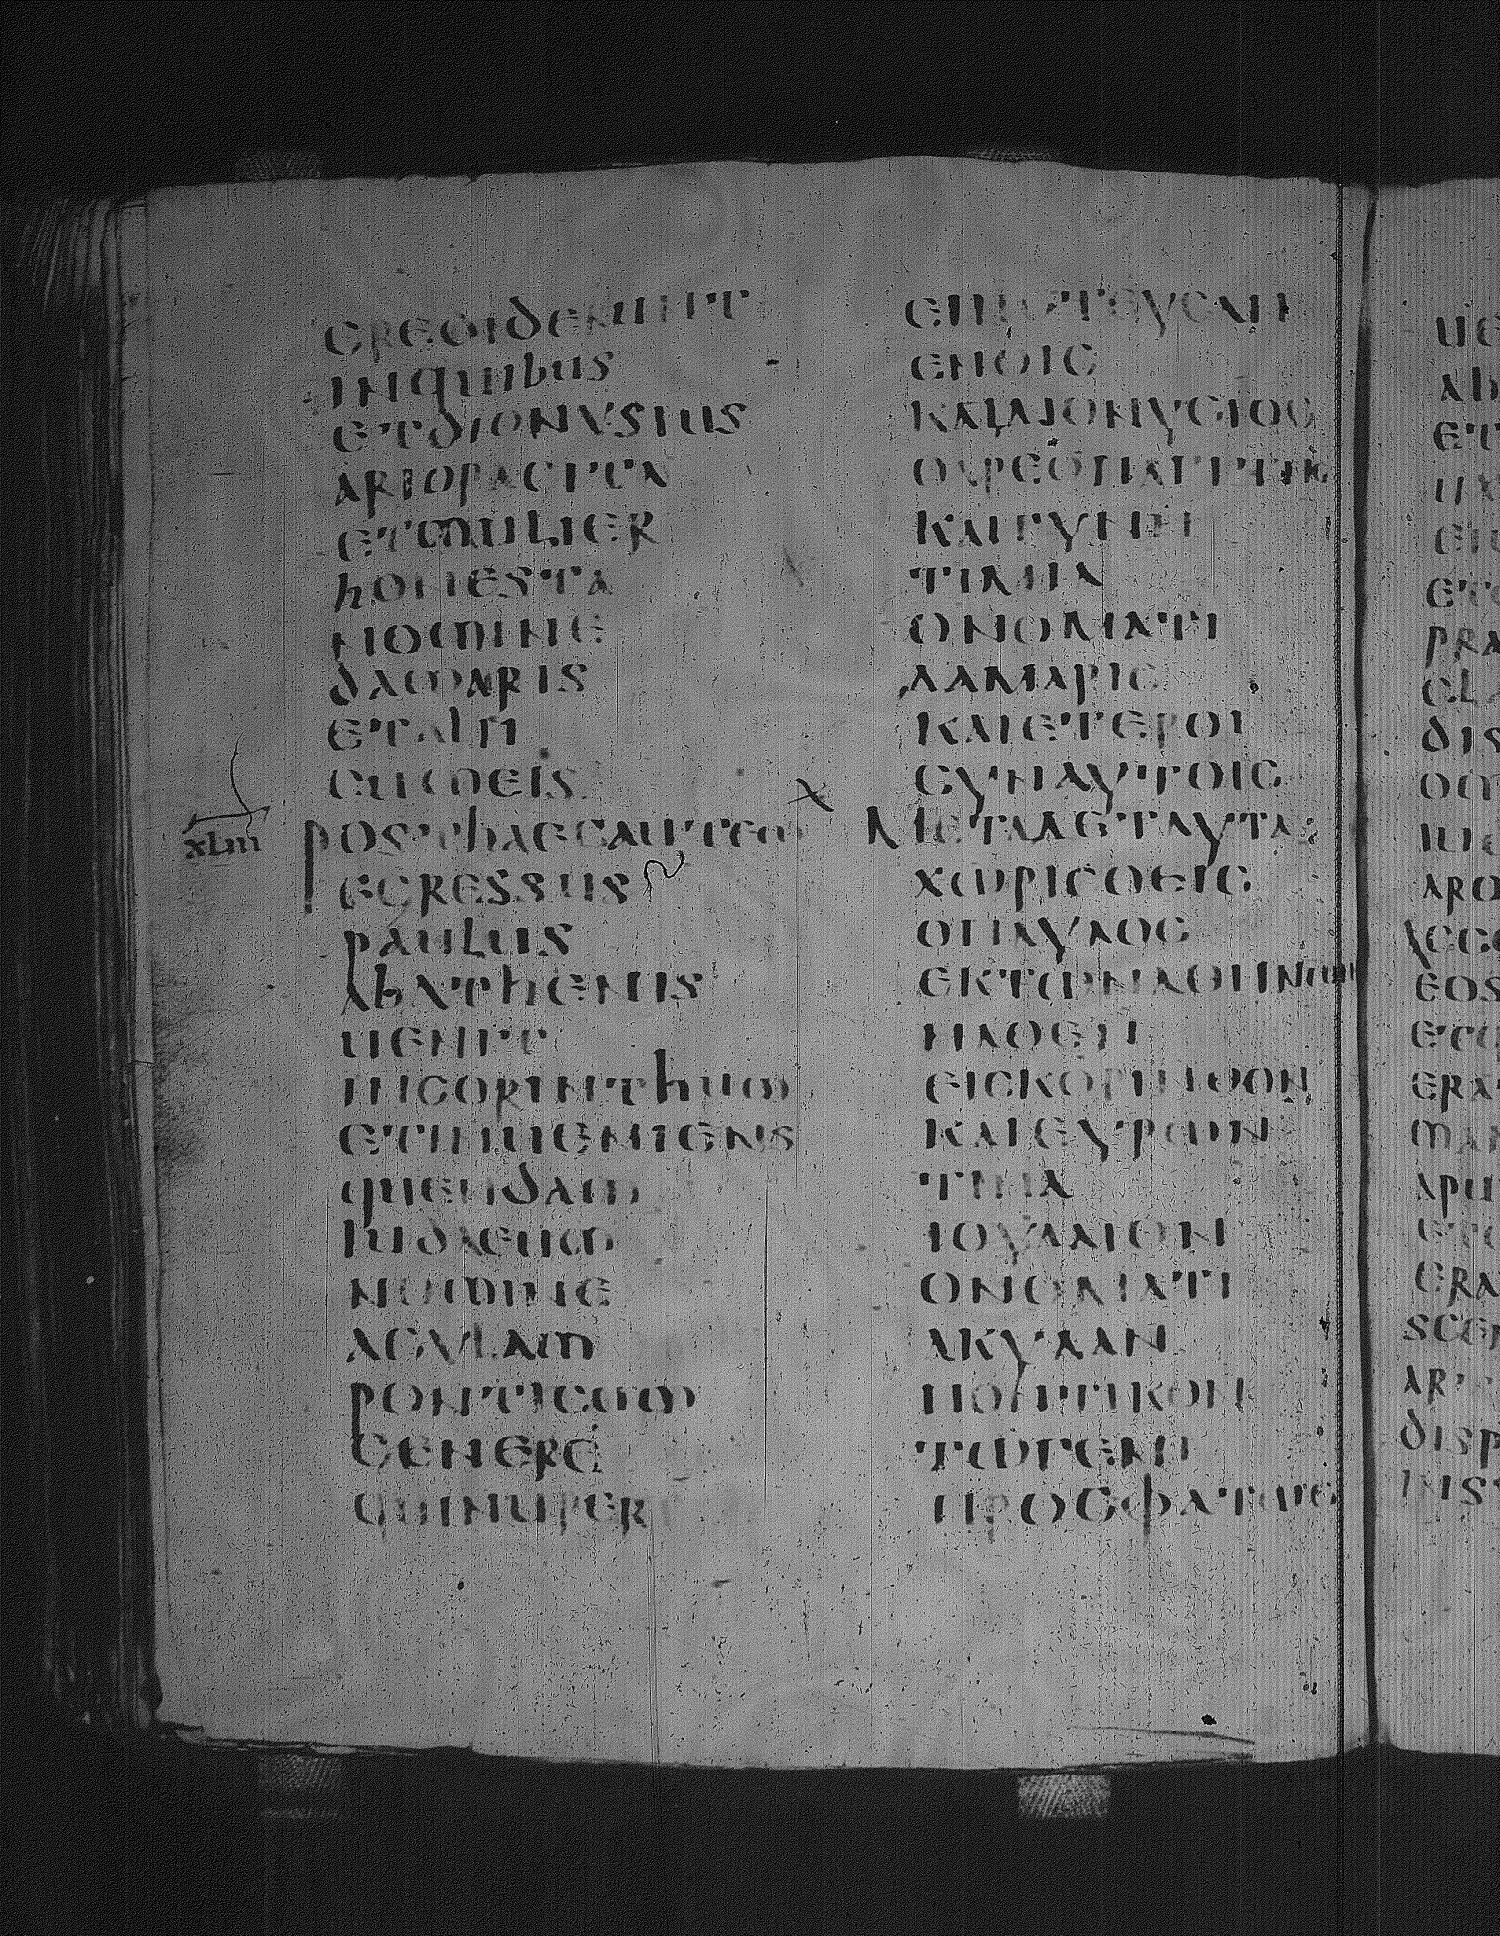 xlm
CREDIDERUNT
INQUIBUS
ETDIONYSIUS
ARIOPAGITA
ETMULIER
HONESTA
NOMINE
DAMARIS
ETALII
CUMEIS
POSTHAECAUTEM
EGRESSUS
PAULUS
ABATHENIS
UENIT
INCORINTHUM
ETINUENIENS
QUENDAM
IUDAEUM
NOMINE
ACYLAM
PONTICUM
GENERE
QUINUPER
ΕΠΙϹΤΕΥϹΑΝ
ΕΝΟΙϹ
ΚΑΙΔΙΟΝΥϹΙΟϹ
ΟΑΡΕΟΠΑΓΙΤΗϹ
ΚΑΙΓΥΝΗ
ΤΙΜΙΑ
ΟΝΟΜΑΤΙ
ΔΑΜΑΡΙϹ
ΚΑΙΕΤΕΡΟΙ
ϹΥΝΑΥΤΟΙϹ
ΜΕΤΑΔΕΤΑΥΤΑ
ΧΩΡΙϹΘΕΙϹ
ΟΠΑΥΛΟϹ
ΕΚΤΩΝΑΘΗΝΩΝ
ΗΛΘΕΝ
ΕΙϹΚΟΡΙΝΘΟΝ
ΚΑΙΕΥΡΩΝ
ΤΙΝΑ
ΙΟΥΔΑΙΟΝ
ΟΝΟΜΑΤΙ
ΑΚΥΛΑΝ
ΠΟΝΤΙΚΟΝ
ΤΩΓΕΝΙ
ΠΡΟϹΦΑΤΩϹ